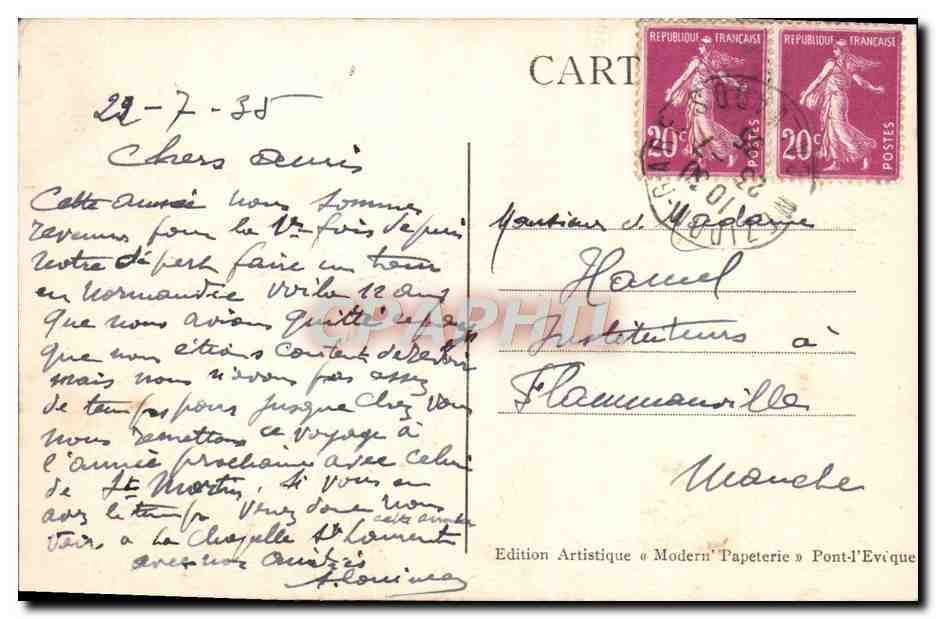 CART
REPUBLIQUE FRANÇAISE
20c
POSTES
REPUBLIQUE FRANÇAISE
20c
POSTES
22-7-35
Chers amis
Cette année nous sommes
revenus pour la 1re fois depuis
notre départ faire un tour
en Normandie Voila 12 ans
que nous avions quitté ce pays
que nous étions contents de revoir
mais nous n'avons pas assez
de temps pour jusque chez vous
nous remettons ce voyage à
l'année prochaine avec celui
de St Martin, si vous en
avez le temps venez donc nous
voir cette année
à La Chapelle St Laurent
avec nos amitiés
Monsieur et Madame
Hamel
Instituteurs à
Flammanville
Manche
CPAPHIL
Edition Artistique « Modern' Papeterie » Pont-l'Evêque